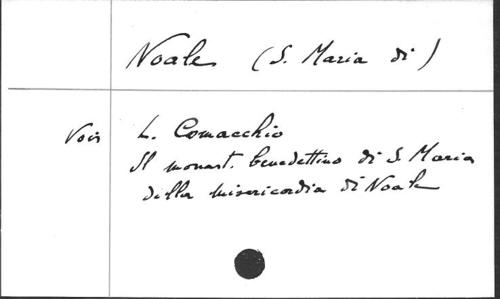 Noale (S. Maria di)
Voir L. Comacchio
Il monast. benedettino di S. Maria
della misericordia di Noale